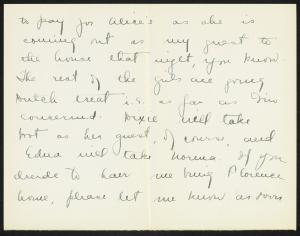 to pay for Alice's as she is
coming out as my guest to
the house that night, you know.
The rest of the girls are going
Dutch treat i.e. as far as I'm
concerned. Dixie will take
Dot as her guest, of course, and
Edna will take Norma. If you
decide to have me bring Florence
home, please let me know as soon